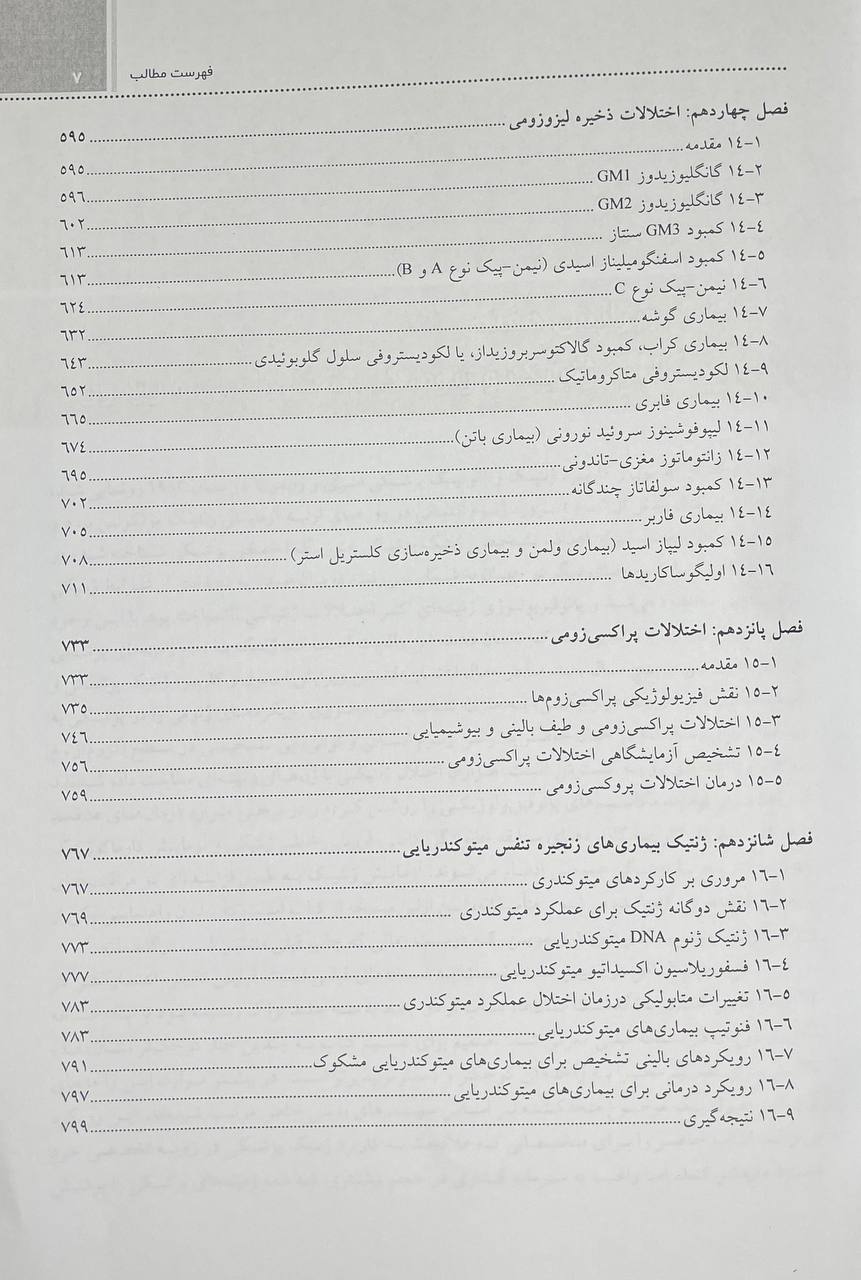 فهرست مطالب ۷
فصل چهاردهم: اختلالات ذخیره لیزوزومی ........ ۵۹۵
۱۴-۱ مقدمه ........ ۵۹۵
۱۴-۲ گانگلیوزیدوز GM1 ........ ۵۹۶
۱۴-۳ گانگلیوزیدوز GM2 ........ ۶۰۲
۱۴-۴ کمبود GM3 سنتاز ........ ۶۱۳
۱۴-۵ کمبود اسفنگومیلیناز اسیدی (نیمن-پیک نوع A و B) ........ ۶۱۳
۱۴-۶ نیمن-پیک نوع C ........ ۶۲۴
۱۴-۷ بیماری گوشه ........ ۶۳۲
۱۴-۸ بیماری کراب، کمبود گالاکتوسربروزیداز، یا لکودیستروفی سلول گلوبوئیدی ........ ۶۴۳
۱۴-۹ لکودیستروفی متاکروماتیک ........ ۶۵۲
۱۴-۱۰ بیماری فابری ........ ۶۶۵
۱۴-۱۱ لیپوفوشینوز سروئید نورونی (بیماری باتن) ........ ۶۷۴
۱۴-۱۲ زانتوماتوز مغزی-تاندونی ........ ۶۹۵
۱۴-۱۳ کمبود سولفاتاز چندگانه ........ ۷۰۲
۱۴-۱۴ بیماری فاربر ........ ۷۰۵
۱۴-۱۵ کمبود لیپاز اسید (بیماری ولمن و بیماری ذخیره‌سازی کلستریل استر) ........ ۷۰۸
۱۴-۱۶ اولیگوساکاریدها ........ ۷۱۱
فصل پانزدهم: اختلالات پراکسی‌زومی ........ ۷۳۳
۱۵-۱ مقدمه ........ ۷۳۳
۱۵-۲ نقش فیزیولوژیکی پراکسی‌زوم‌ها ........ ۷۳۵
۱۵-۳ اختلالات پراکسی‌زومی و طیف بالینی و بیوشیمیایی ........ ۷۴۶
۱۵-۴ تشخیص آزمایشگاهی اختلالات پراکسی‌زومی ........ ۷۵۶
۱۵-۵ درمان اختلالات پروکسی‌زومی ........ ۷۵۹
فصل شانزدهم: ژنتیک بیماری‌های زنجیره تنفس میتوکندریایی ........ ۷۶۷
۱۶-۱ مروری بر کارکردهای میتوکندری ........ ۷۶۷
۱۶-۲ نقش دوگانه ژنتیک برای عملکرد میتوکندری ........ ۷۶۹
۱۶-۳ ژنتیک ژنوم DNA میتوکندریایی ........ ۷۷۳
۱۶-۴ فسفوریلاسیون اکسیداتیو میتوکندریایی ........ ۷۷۷
۱۶-۵ تغییرات متابولیکی درزمان اختلال عملکرد میتوکندری ........ ۷۸۳
۱۶-۶ فنوتیپ بیماری‌های میتوکندریایی ........ ۷۸۳
۱۶-۷ رویکردهای بالینی تشخیص برای بیماری‌های میتوکندریایی مشکوک ........ ۷۹۱
۱۶-۸ رویکرد درمانی برای بیماری‌های میتوکندریایی ........ ۷۹۷
۱۶-۹ نتیجه‌گیری ........ ۷۹۹